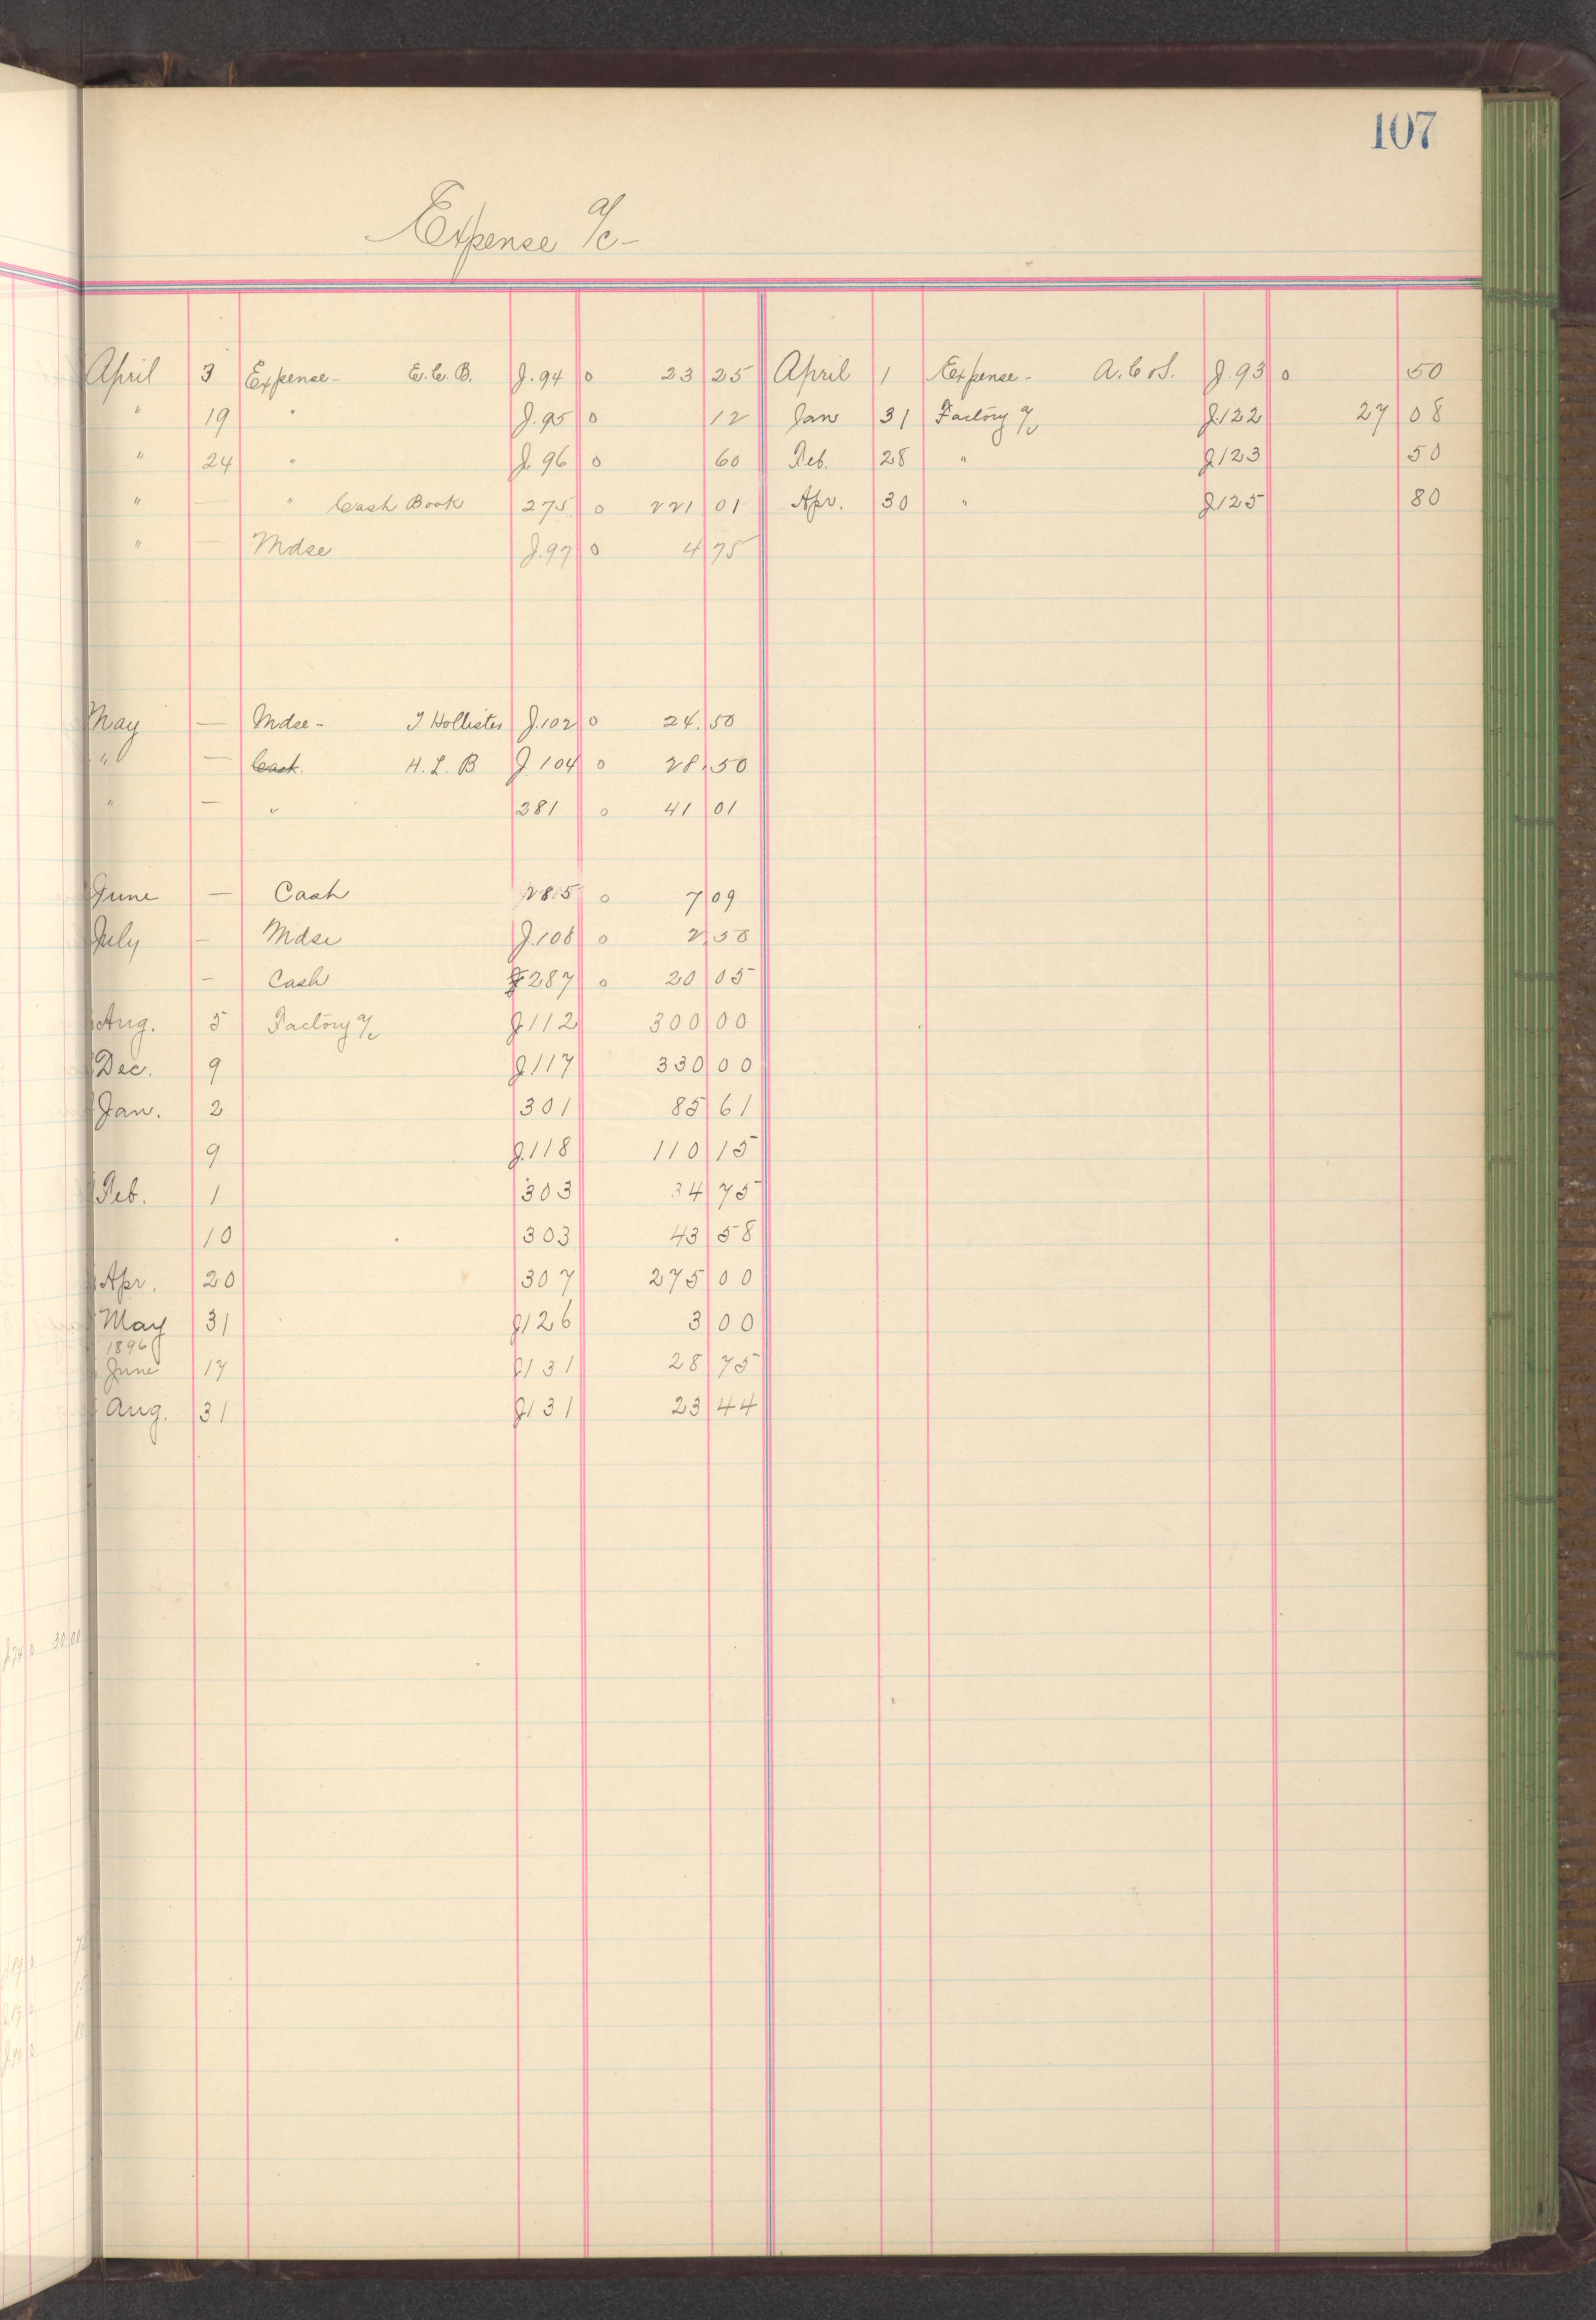 107
Expense a/c -
April 3 Expense - E. C. B. J. 94 0 23 25 April 1 Expense - J. 93 0 50
" 19 " J. 95 0 12 Jan 31 Factory a/c J. 122 27 08
" 24 " J. 96 0 60 Feb. 28 " J. 123 50
" — " Cash Book 275 0 221 01 Apr. 30 " J. 125 80
" — Mdse J. 97 0 4 75
May — Mdse - J Hollister J. 102 0 24. 50
" — Cash. H. L. B J. 104 0 28. 50
" — " 281 0 41 01
June — Cash 285 0 7 09
July — Mdse J. 108 0 2 50
— Cash 287 0 20 05
Aug. 5 Factory a/c J. 112 300 00
Dec. 9 J. 117 330 00
Jan. 2 301 85 61
9 J. 118 110 15
Feb. 1 303 34 75
10 303 43 58
Apr. 20 307 275 00
May 31 J 126 3 00
1896
June 17 J 131 28 75
Aug. 31 J 131 23 44